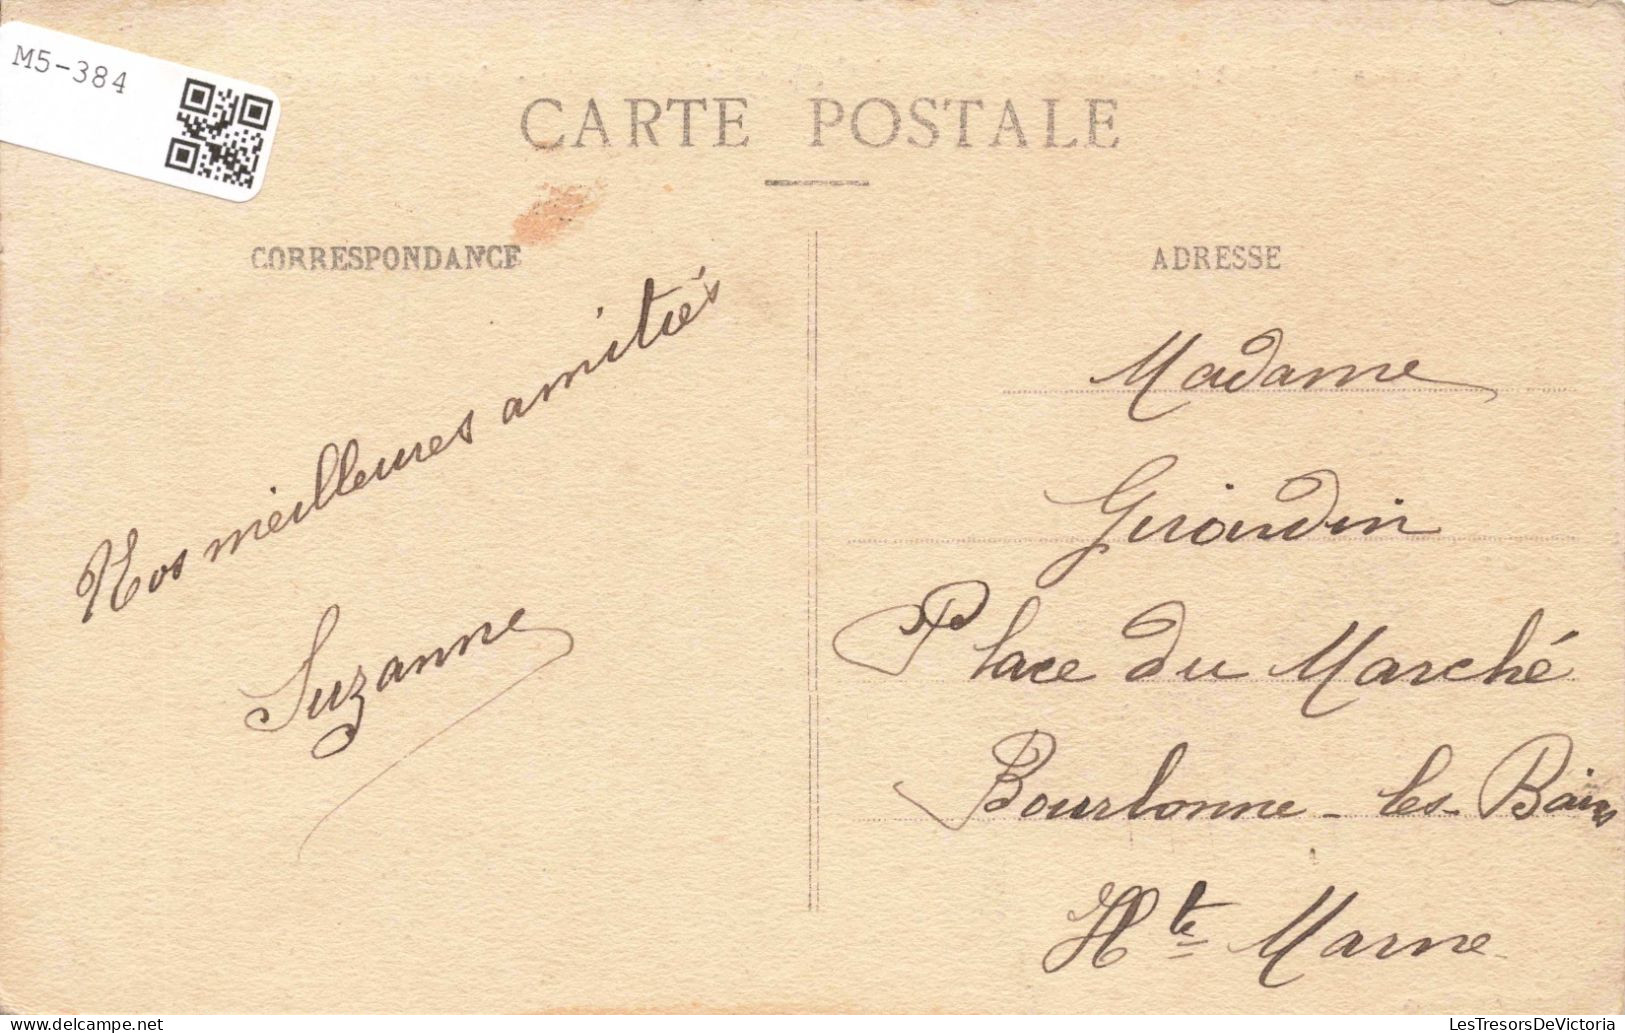 M5-384
CARTE POSTALE
CORRESPONDANCE
Nos meilleures amitiés
Suzanne
ADRESSE
Madame
Girardin
Place du Marché
Bourbonne-les-Bains
Hte Marne
delcampe.net
LesTresorsDeVictoria